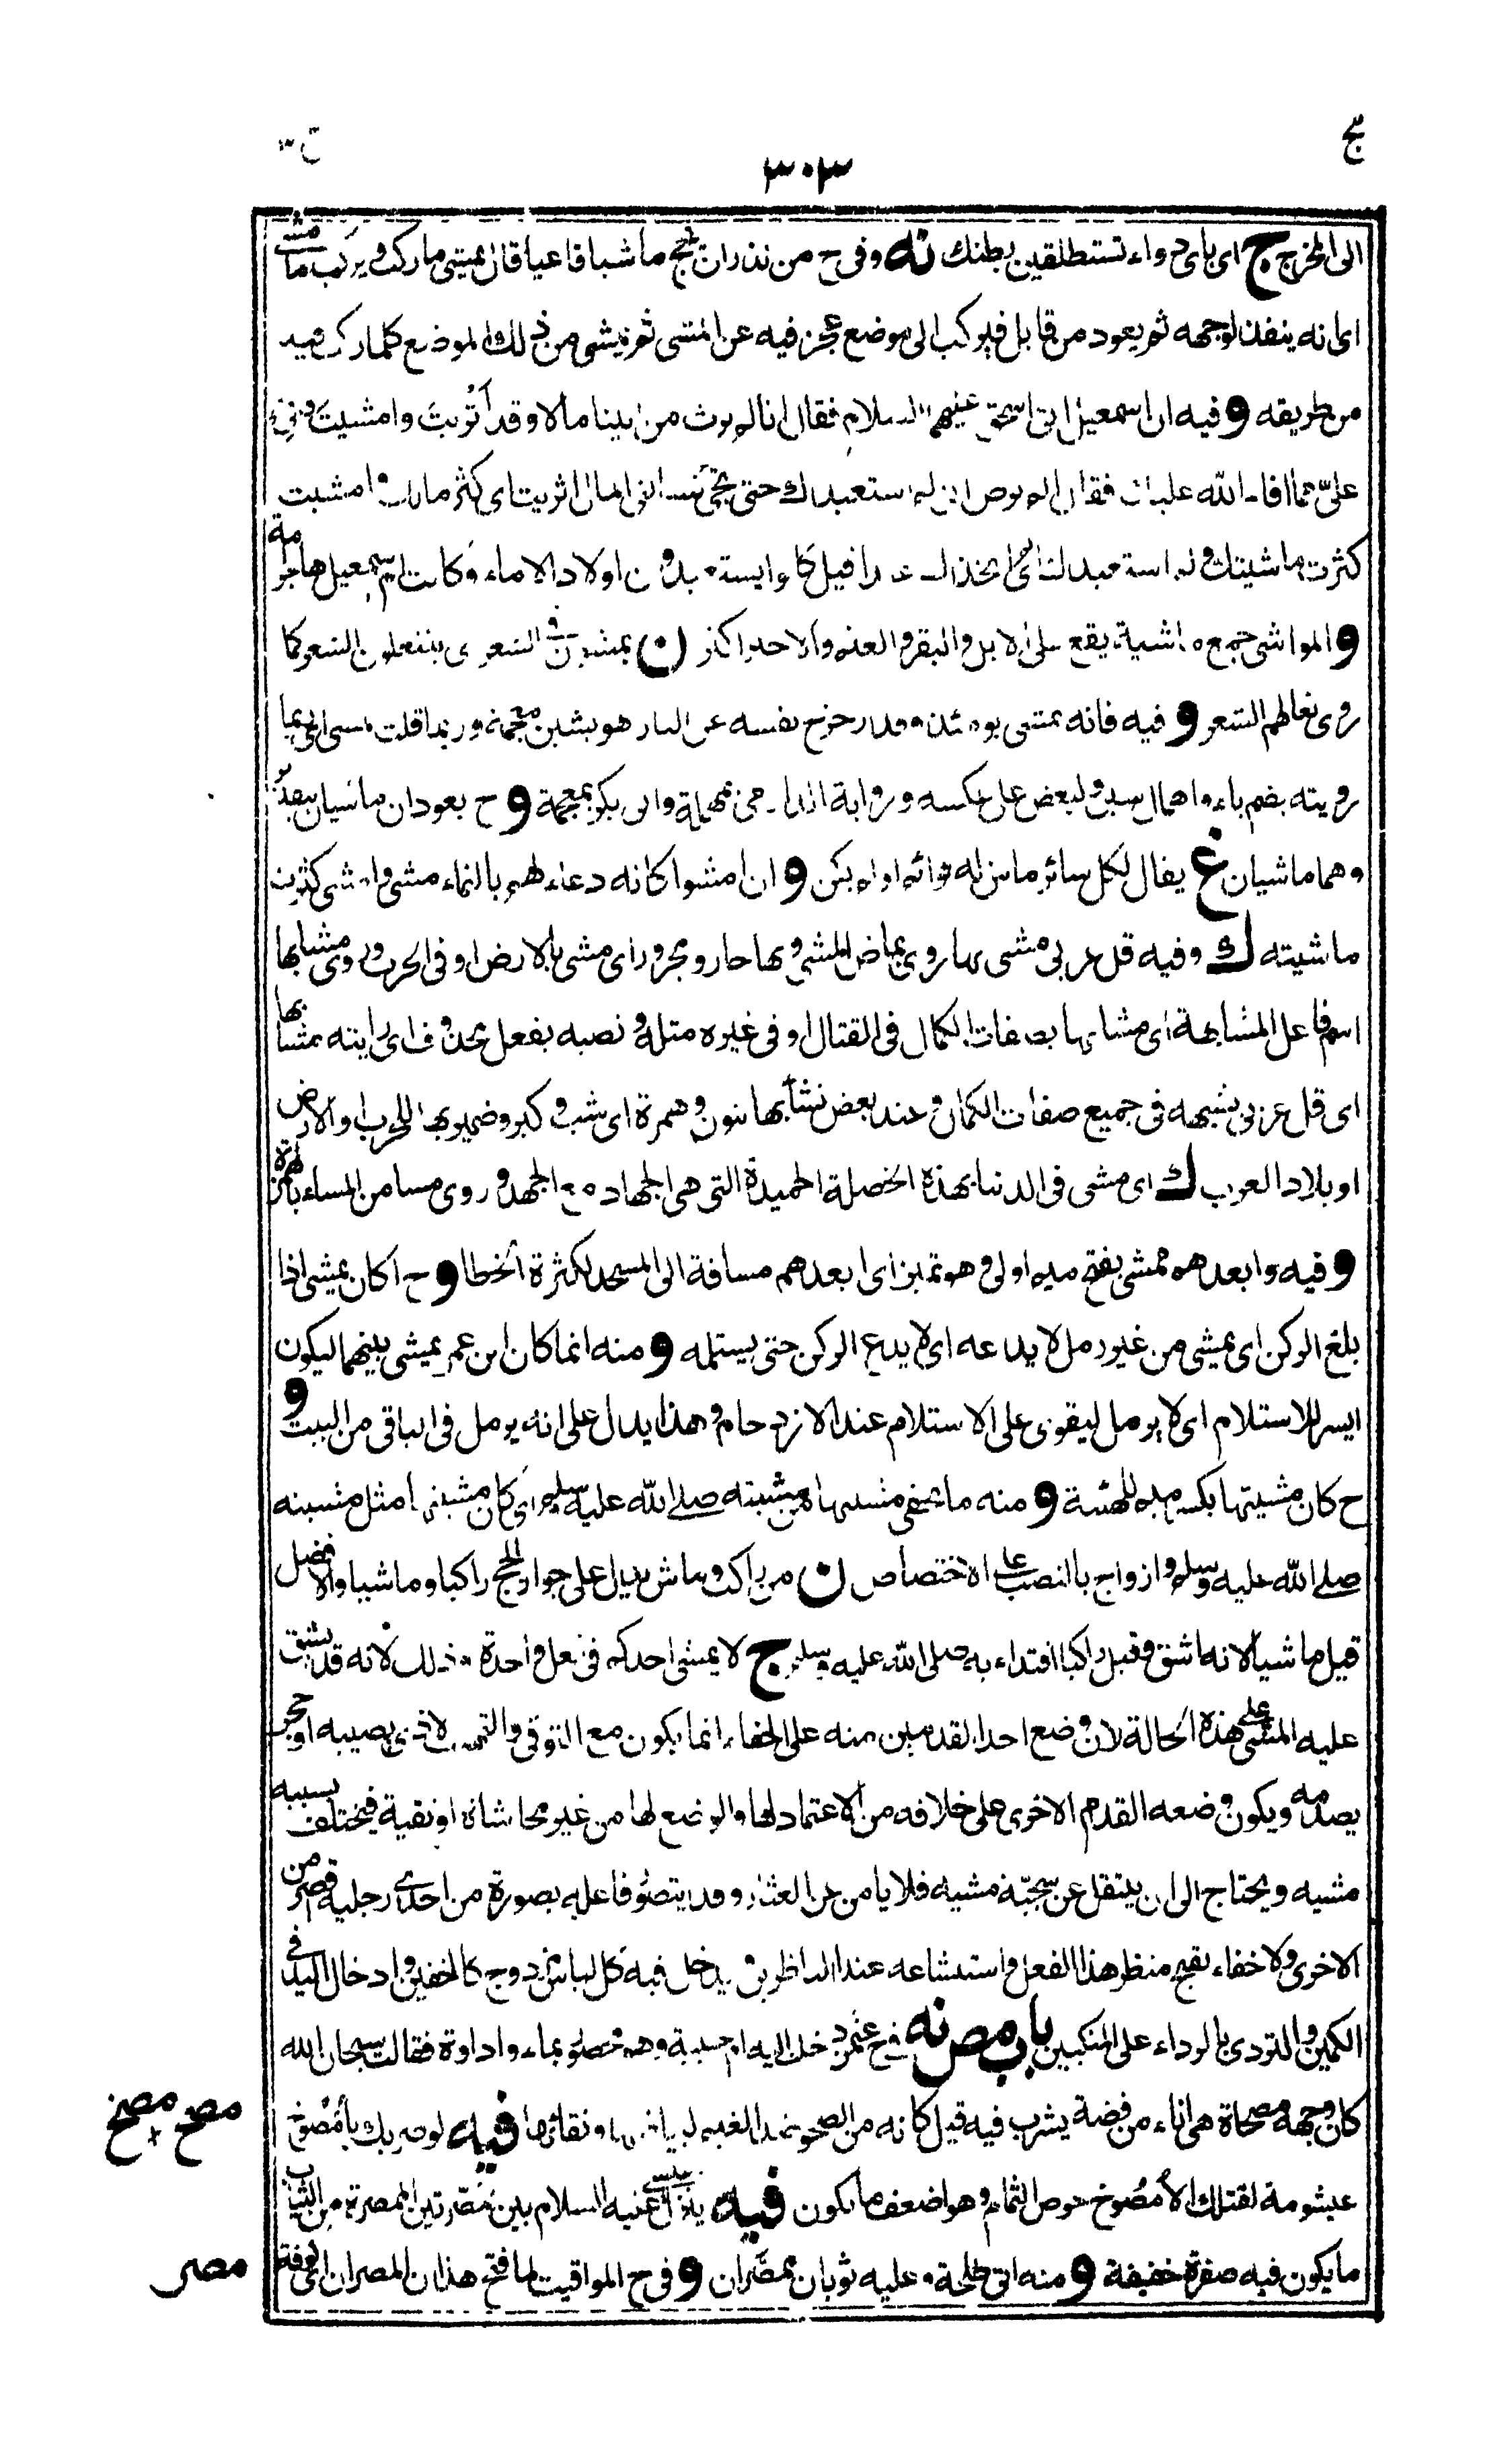 مج
ج ٣
٣٠٣
الى المخرج ج اى باى دواء تستطلقين بطنك نه وفى ح من نذر ان يحج ماشيا فاعيا قال يمشى ما ركب ويركب ما مشى
اى انه ينفذ لوجهه ثم يعود من قابل فيركب الى موضع عجز فيه عن المشى ثم يمشى من ذلك الموضع كلما ركب فيه
من طريقه و فيه ان اسمعيل اتى اسحق عليهما السلام فقال انا لم نرث من ابينا مالا وقد أثريت وامشيت فافئ
علىّ مما افاء الله عليك فقال الم ترض انى لم استعبدك حتى تجئ فتسألنى المال اثريت اى كثر مالك وامشيت
كثرت ماشيتك ولم استعبدك اى لم اتخذك عبدا قيل كانوا يستعبدون اولاد الاماء وكانت ام اسمعيل هاجر امة
و المواشى جمع ماشية يقع على الابل والبقر والغنم والاخير اكثر ن يمشون فى الشعر اى ينتعلون الشعر كما
روى نعالهم الشعر و فيه فانه يمشى يومئذ وقد زحزح نفسه عن النار هو بشين معجمة وربما قلت يمسى اى بما
رويته بضم ياء واهمال سين ولبعض على عكسه ورواية الدارمى مهملة وابى بكر بمعجمة و ح يعودان ماشيان
وهما ماشيان غ يقال لكل سائر ماش له قوائم او لم يكن و ان امشوا كانه دعاء لهم بالنماء مشى وامشى كثرت
ماشيته ك وفيه قل عربى مشى بها روى بماضى المشى وبها جار ومجرور اى مشى بالارض او فى الحرب وروى مشابها
اسم فاعل المشابهة اى مشابها بصفات الكمال فى القتال او فى غيره مثله ونصبه بفعل محذوف اى رايته مشابها
اى قل عربى يشبهه فى جميع صفات الكمال وعند بعض نشأ بها بنون وهمزة اى شب وكبر وضمير بها للحرب او الارض
او بلاد العرب ك اى مشى فى الدنيا بهذه الخصلة الحميدة التى هى الجهاد مع الجهد وروى مسا من المساء بالهمزة
و فيه وابعدهم ممشى بفتح ميم اولى وهو تميز اى ابعدهم مسافة الى المسجد لكثرة الخطا و ح اكان يمشى اذا
بلغ الركن اى يمشى من غير رمل لا يدعه اى لا يدع الركن حتى يستلمه و منه انما كان ابن عمر يمشى بينهما ليكون
ايسر للاستلام اى لا يرمل ليقوى على الاستلام عند الازدحام وهذا يدل على انه يرمل فى الباقى من البيت و
ح كان مشيتها بكسر ميم للهيئة و منه ما يخفى مشيتها من مشيته صلى الله عليه وسلم اى كان مشيتها مثل مشيته
صلى الله عليه وسلم وازواج بالنصب على الاختصاص ن من راكب وماش يدل على جواز الحج راكبا وماشيا والافضل
قيل ماشيا لانه اشق وقيل راكبا اقتداء به صلى الله عليه وسلم ج لا يمشى احدكم فى نعل واحدة وذلك لانه قد يشق
عليه المشى على هذه الحالة لان وضع احد القدمين منه على الحفاء انما يكون مع التوقى والتهيب لاذى يصيبه او حجر
يصدمه ويكون وضعه القدم الاخرى على خلافه من الاعتماد لها والوضع لها من غير محاشاة او تقية فيختلف بسببه
مشيه ويحتاج الى ان ينتقل عن سجية مشيه فلا يامن من العثار وقد يتصور فاعله بصورة من احدى رجليه اقصر من
الاخرى ولا خفاء بقبح منظر هذا الفعل واستبشاعه عند الناظرين ويدخل فيه كل لباس مزدوج كالخفين وادخال اليد فى
الكمين والتردى بالرداء على المنكبين باب مص نه فى ح عثمن دخلت اليه ام حبيبة وهو محصور بماء واداوة فقالت سبحان الله
كان وجهه مصحاة هى اناء من فضة يشرب فيه قيل كانه من الصحو ضد الغيم لبياضها ونقائها فيه لو ضربك بأمصوخ
عيشومة لقتلك الامصوخ خوص الثمام وهو اضعف ما يكون فيه ينزل عيسى عليه السلام بين ممصرتين الممصرة من الثياب
ما يكون فيه صفرة خفيفة و منه اتى طلحة وعليه ثوبان ممصّران و فى ح المواقيت لما فتح هذان المصران اى الكوفة
مصح مصخ
مصر